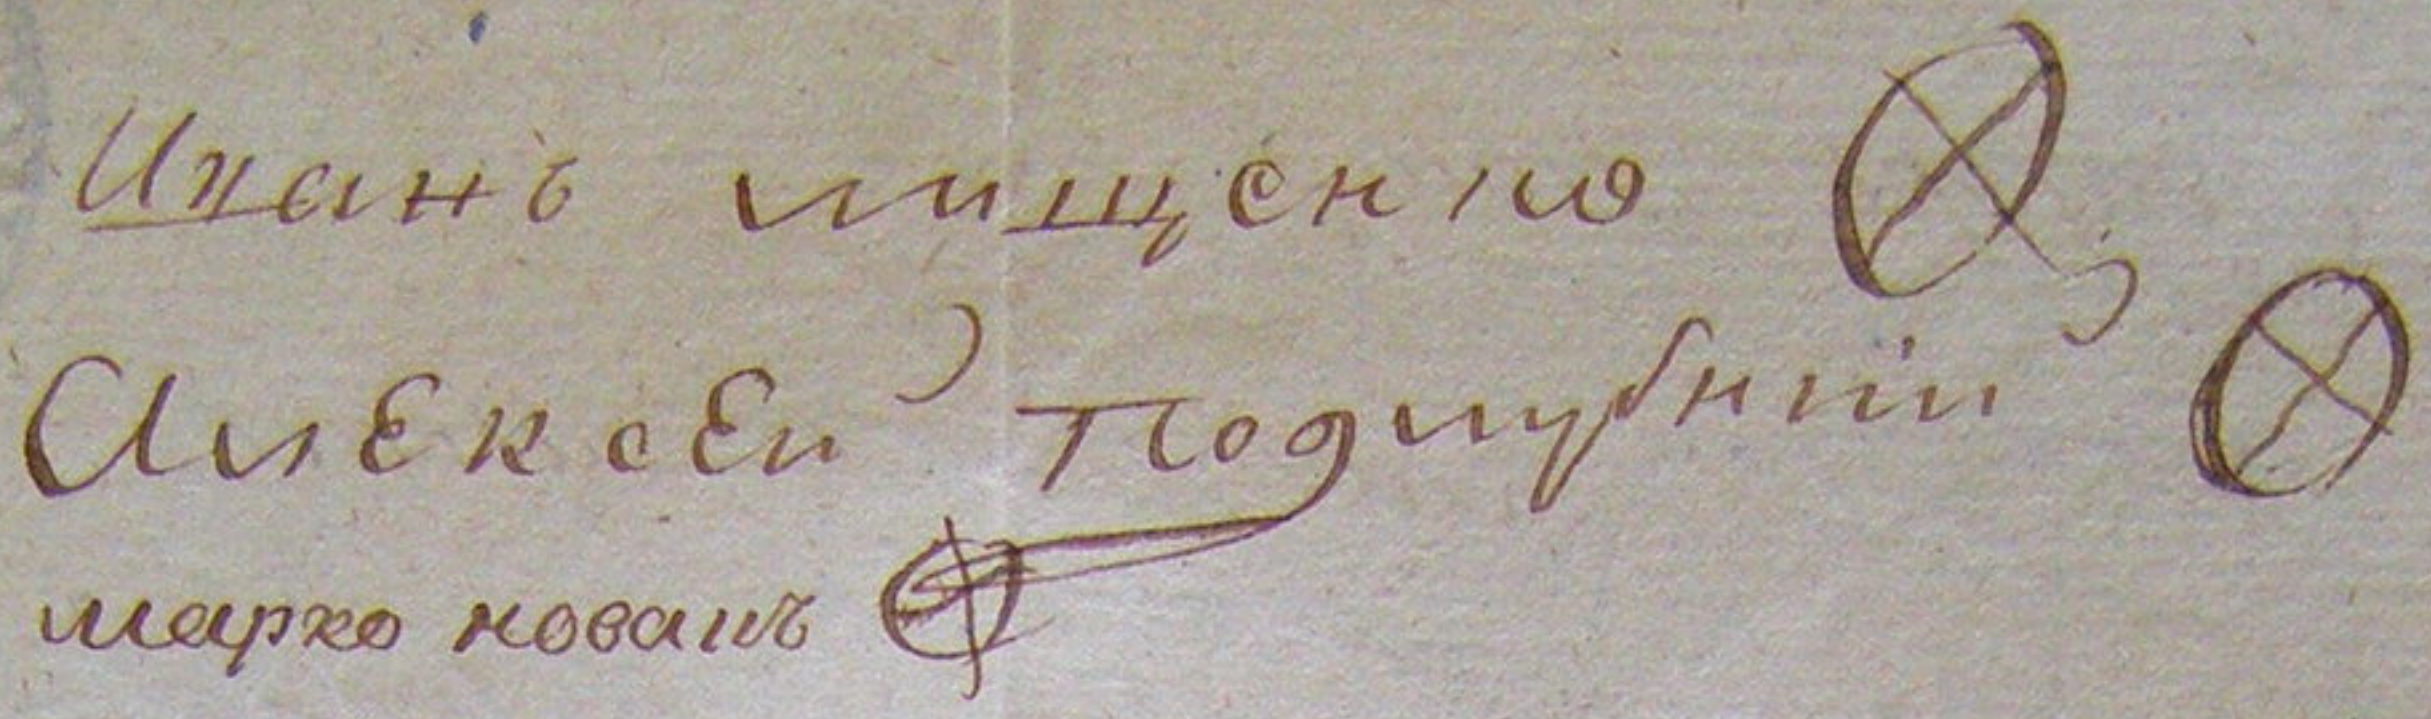 Иванъ мищенко
Алексей Поддубний
марко ковалъ